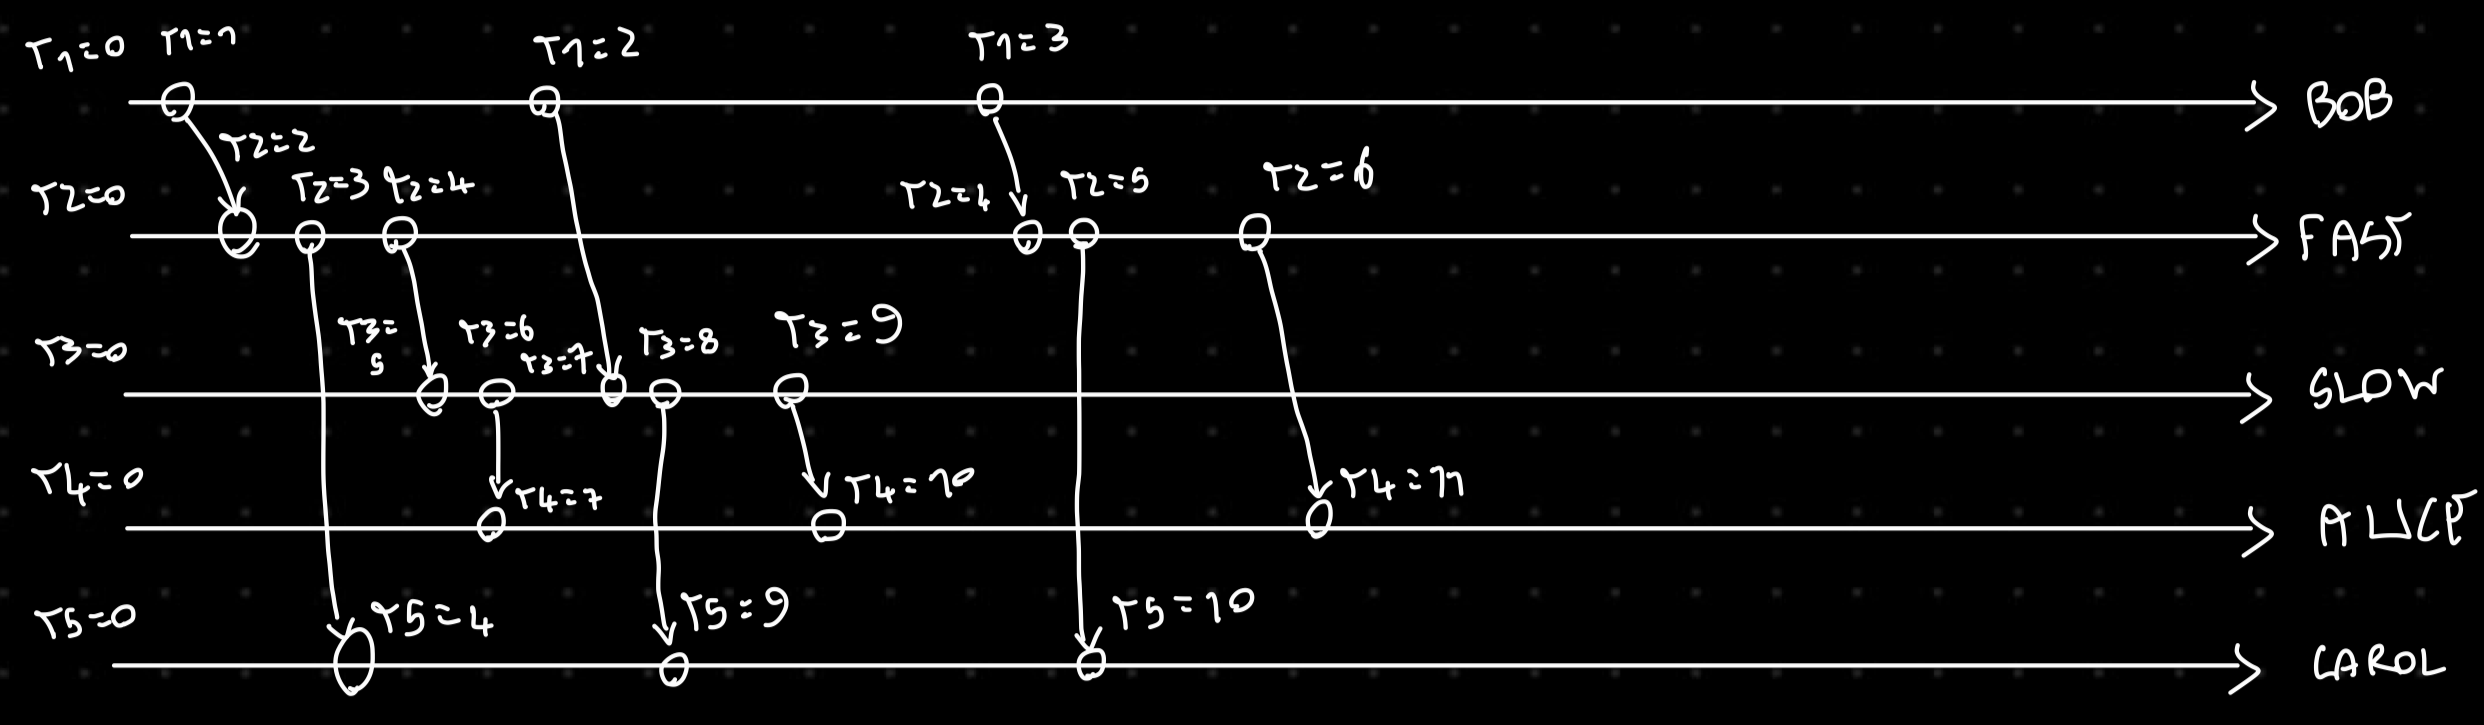 T1=0 T1=1 T1=2 T1=3
BOB
T2=2
T2=0 T2=3 T2=4 T2=4 T2=5 T2=6
FAST
T3=0 T3=5 T3=6 T3=7 T3=8 T3=9
SLOW
T4=0 T4=7 T4=10 T4=11
ALICE
T5=0 T5=4 T5=9 T5=10
CAROL